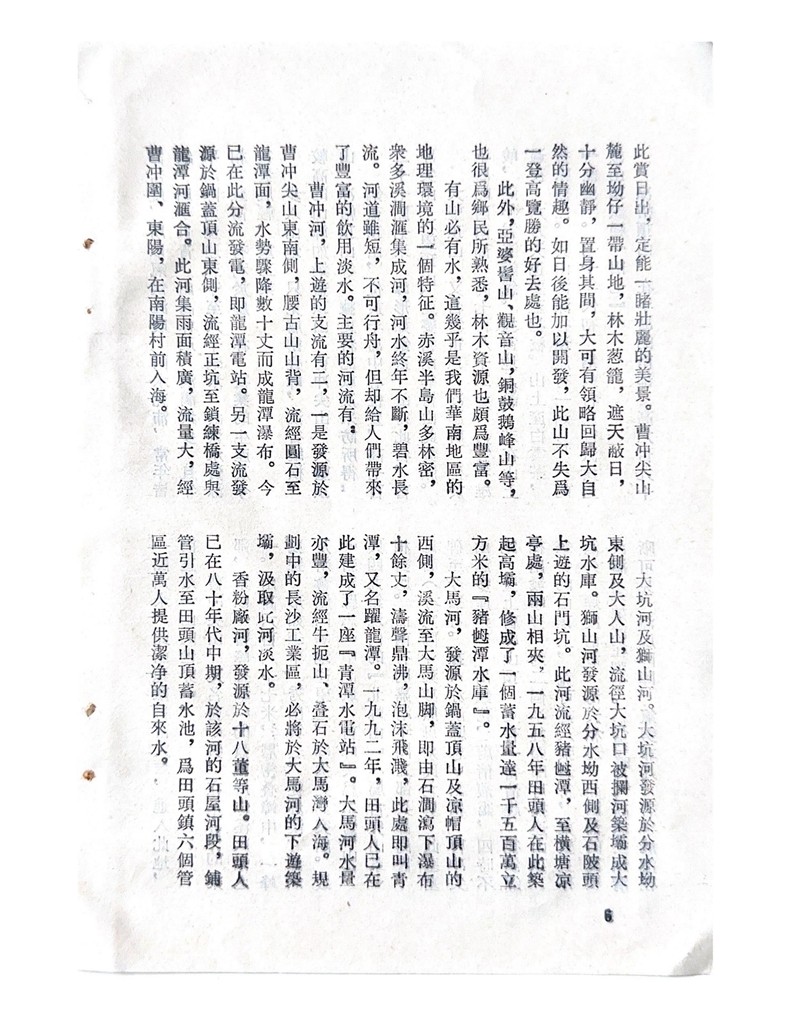 此賞日出，定能一睹壯麗的美景。曹冲尖山
麓至坳仔一帶山地，林木葱籠，遮天蔽日，
十分幽靜。置身其間，大可有領略回歸大自
然的情趣。如日後能加以開發，此山不失爲
一登高覽勝的好去處也。
此外，亞婆髻山、觀音山，銅鼓鵝峰山等，
也很爲鄉民所熟悉，林木資源也頗爲豐富。
有山必有水，這幾乎是我們華南地區的
地理環境的一個特征。赤溪半島山多林密，
衆多溪澗滙集成河，河水終年不斷，碧水長
流。河道雖短，不可行舟，但却給人們帶來
了豐富的飲用淡水。主要的河流有：
曹冲河，上遊的支流有二，一是發源於
曹冲尖山東南側，腰古山山背，流經圓石至
龍潭面，水勢驟降數十丈而成龍潭瀑布。今
已在此分流發電，即龍潭電站。另一支流發
源於鍋蓋頂山東側，流經正坑至鎖練橋處與
龍潭河滙合。此河集雨面積廣，流量大，經
曹冲圍、東陽，在南陽村前入海。
大坑河及獅山河。大坑河發源於分水坳
東側及大人山，流徑大坑口被攔河築壩成大
坑水庫。獅山河發源於分水坳西側及石陂頭
上遊的石門坑。此河流經豬乸潭，至橫塘凉
亭處，兩山相夾，一九五八年田頭人在此築
起高壩，修成了一個蓄水量達一千五百萬立
方米的『豬乸潭水庫』。
大馬河，發源於鍋蓋頂山及凉帽頂山的
西側，溪流至大馬山脚，即由石澗瀉下瀑布
十餘丈，濤聲鼎沸，泡沫飛濺，此處即叫青
潭，又名躍龍潭。一九九二年，田頭人已在
此建成了一座『青潭水電站』。大馬河水量
亦豐，流經牛扼山、叠石於大馬灣入海。規
劃中的長沙工業區，必將於大馬河的下遊築
壩，汲取此河淡水。
香粉廠河，發源於十八董等山。田頭人
已在八十年代中期，於該河的石屋河段，鋪
管引水至田頭山頂蓄水池，爲田頭鎮六個管
區近萬人提供潔净的自來水。
6